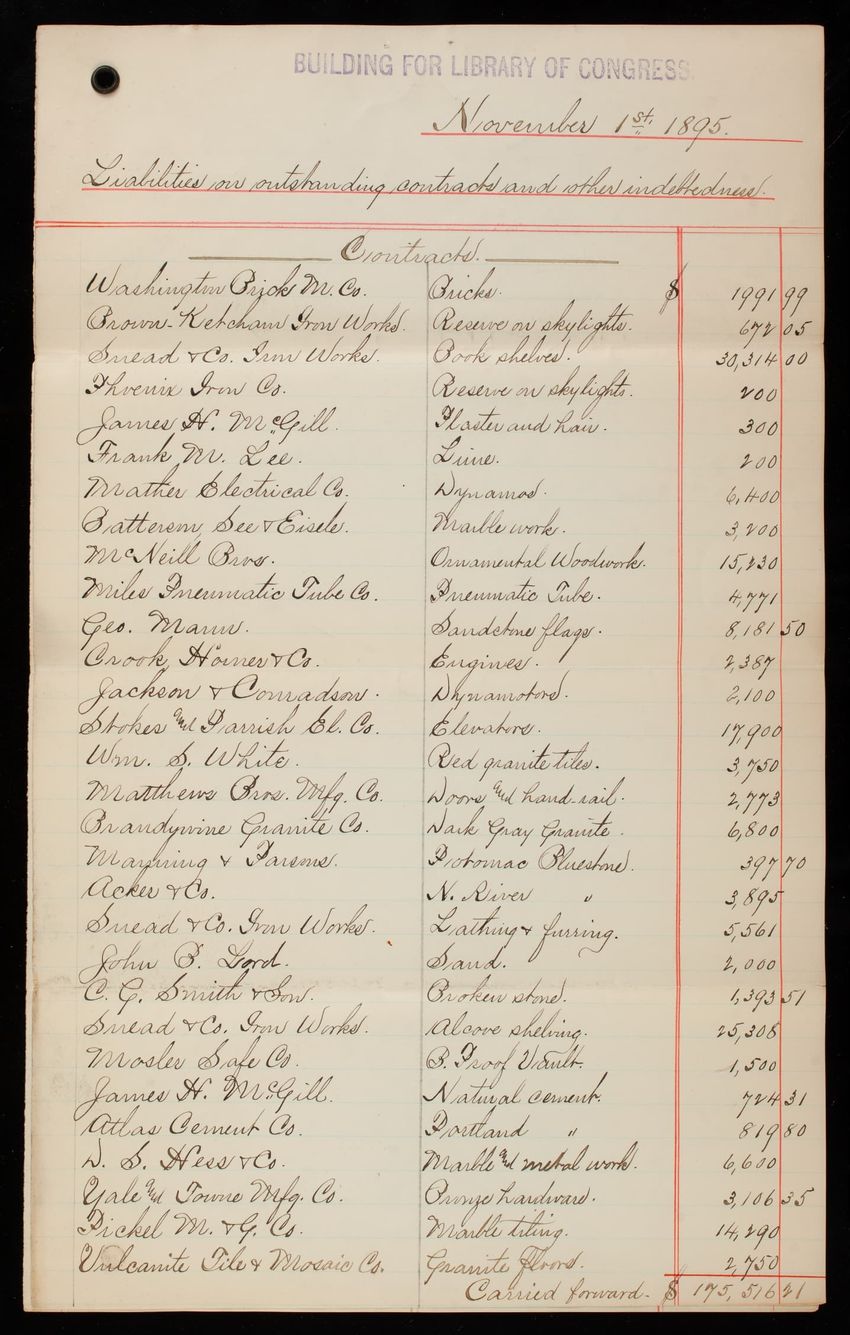 BUILDING FOR LIBRARY OF CONGRESS.
November 1st. 1895.
Liabilities on outstanding contracts and other indebtedness.
Contracts.
Washington Brick M. Co. Bricks. $ 1991 99
Brown-Ketcham Iron Works. Reserve on skylights. 672 05
Snead & Co. Iron Works. Book shelves. 30,314 00
Phoenix Iron Co. Reserve on skylights. 200
James H. McGill. Plaster and hair. 300
Frank M. Lee. Lime. 200
Mather Electrical Co. Dynamos. 6,400
Batterson, See & Eisele. Marble work. 3,200
McNeill Bros. Ornamental Woodwork. 15,230
Miles Pneumatic Tube Co. Pneumatic Tube. 4,771
Geo. Mann. Sandstone flags. 8,181 50
Crook, Horner & Co. Engines. 2,387
Jackson & Conradson. Dynamotors. 2,100
Stokes and Parrish El. Co. Elevators. 17,900
Wm. S. White. Red granite tiles. 3,750
Matthews Bros. Mfg. Co. Doors and hand-rail. 2,773
Brandywine Granite Co. Dark Gray Granite. 6,800
Manning & Parsons. Potomac Bluestone. 397 70
Acker & Co. N. River " 3,895
Snead & Co. Iron Works. Lathing & furring. 5,561
John B. Lord. Sand. 2,000
C. G. Smith & Son. Broken stone. 1,393 51
Snead & Co. Iron Works. Alcove shelving. 25,308
Mosler Safe Co. B. Proof Vault. 1,500
James H. McGill. Natural cement. 724 31
Atlas Cement Co. Portland " 819 80
D. S. Hess & Co. Marble and metal work. 6,600
Yale and Towne Mfg. Co. Bronze hardware. 3,106 35
Pickel M. & G. Co. Marble tiling. 14,290
Vulcanite Tile & Mosaic Co. Granite floors. 2,750
Carried forward. $ 175,516 21